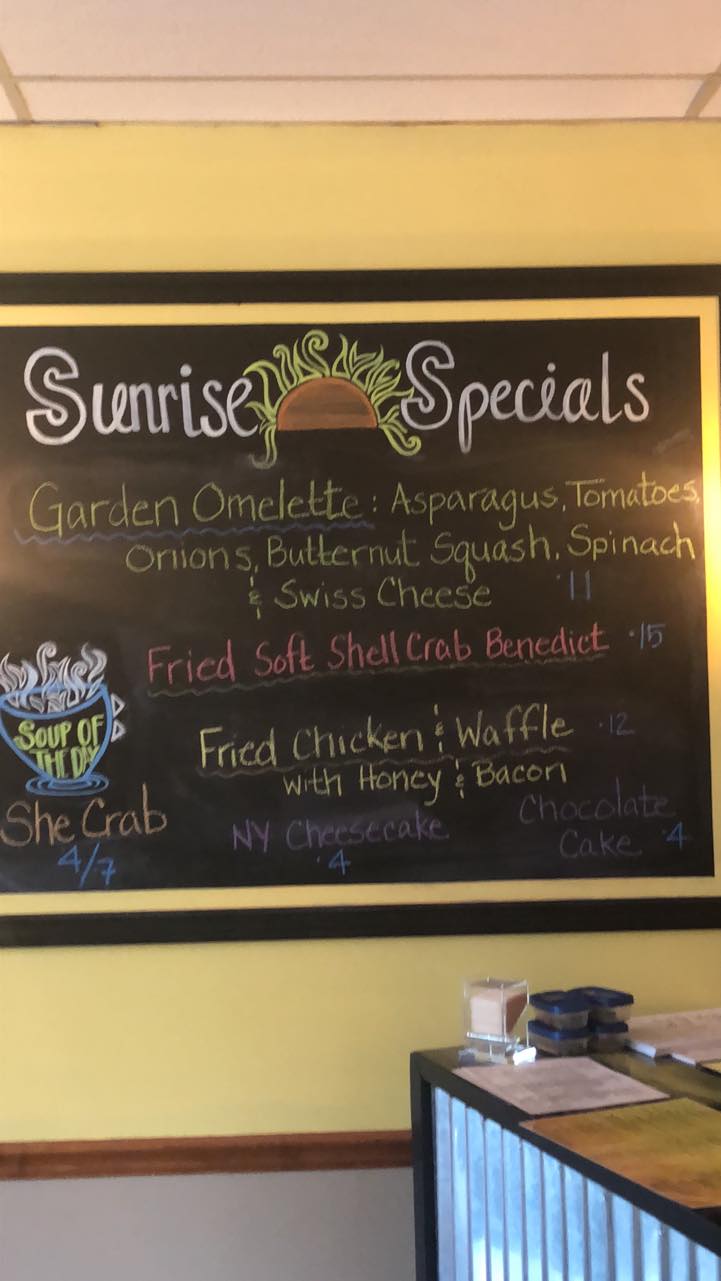 Sunrise Specials
Garden Omelette: Asparagus, Tomatoes,
Onions, Butternut Squash, Spinach
& Swiss Cheese ·11
Fried Soft Shell Crab Benedict ·15
Fried Chicken & Waffle ·12
with Honey & Bacon
SOUP OF
THE DAY
She Crab
4/7
NY Cheesecake
·4
Chocolate
Cake ·4